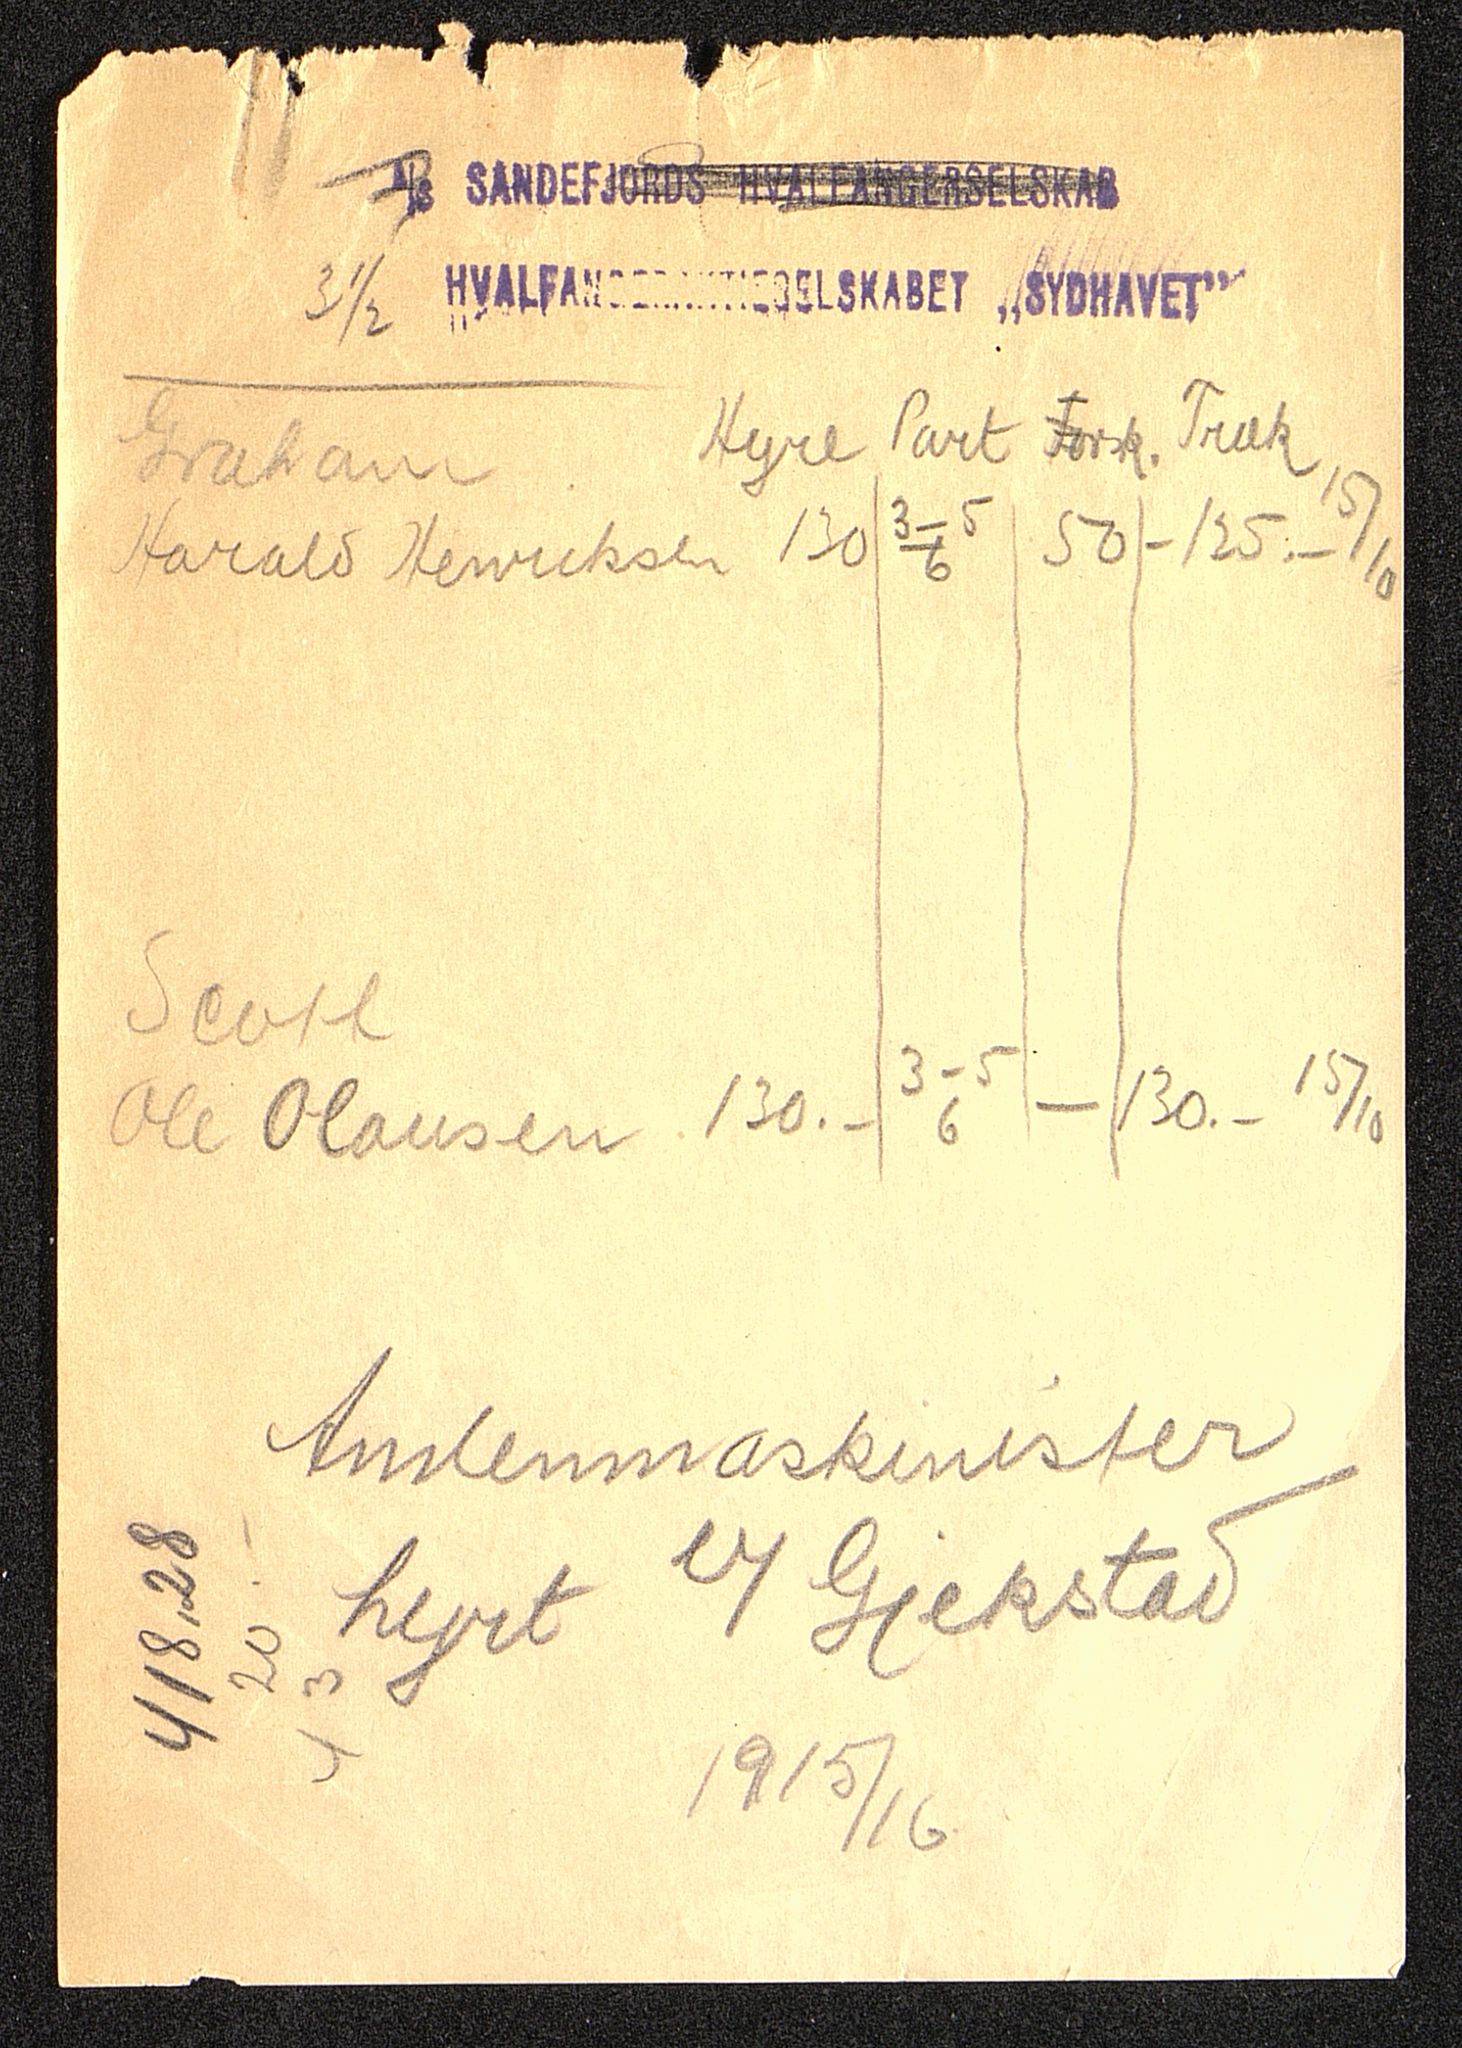 A/s SANDEFJORDS HVALFANGERSELSKAB
3 1/2 HVALFANGERAKTIESELSKABET „SYDHAVET”
Hyre Part Forsk. Træk
Graham
Harald Henriksen 130 3-5 50 - 125.- 15/10
6
Scott
Ole Olausen 130.- 3-5 - 130.- 15/10
6
Andenmaskinister
hyrt af Gjekstad
1915/16
418,28
20
3